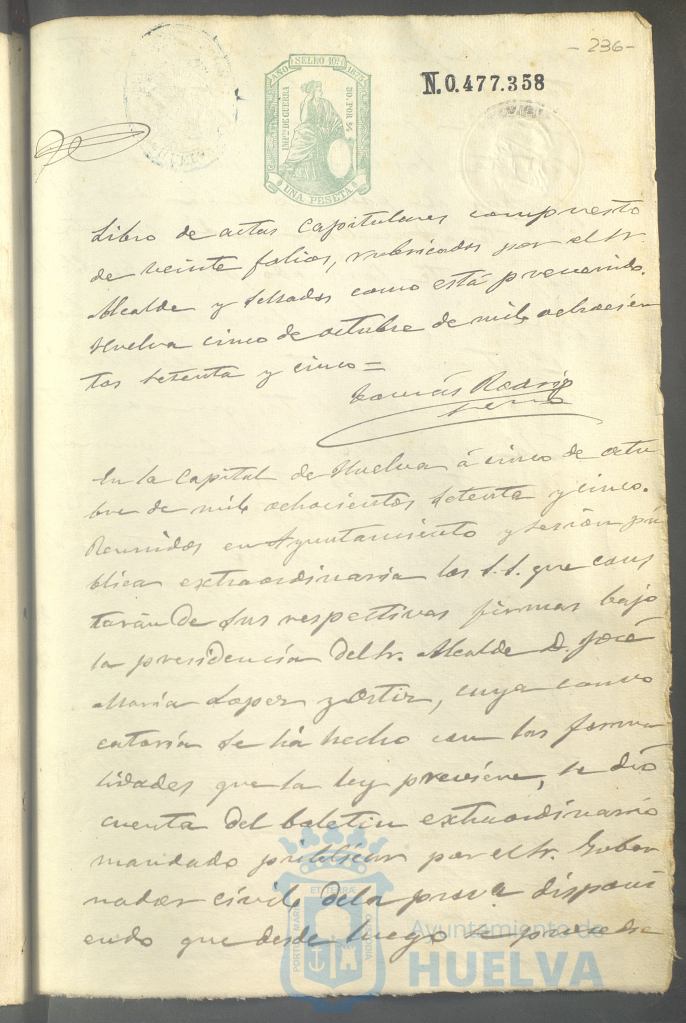 - 236 -
N.0.477.358
AÑO SELLO 10º 1875
IMPTO DE GUERRA
50 POR %
UNA PESETA
Libro de actas Capitulares compuesto
de veinte folios, rubricados por el Sr.
Alcalde y sellados como está prevenido.
Huelva cinco de octubre de mil ochocien
tos setenta y cinco =
Tomás Rodrig
En la Capital de Huelva á cinco de octu
bre de mil ochocientos setenta y cinco.
Reunidos en Ayuntamiento y sesión pú
blica extraordinaria los S.S. que cons
tarán de sus respectivas firmas bajo
la presidencia del Sr. Alcalde D. José
María Lopez y Ortiz, cuya convo
catoria se há hecho con las forma
lidades que la ley previene, se dió
cuenta del boletin extraordinario
mandado publicar por el Sr. Gober
nador civil de la prova. disponi
endo que desde luego se proceda
PORTUS MARIS ET TERRAE CUSTODIA
Ayuntamiento de
HUELVA